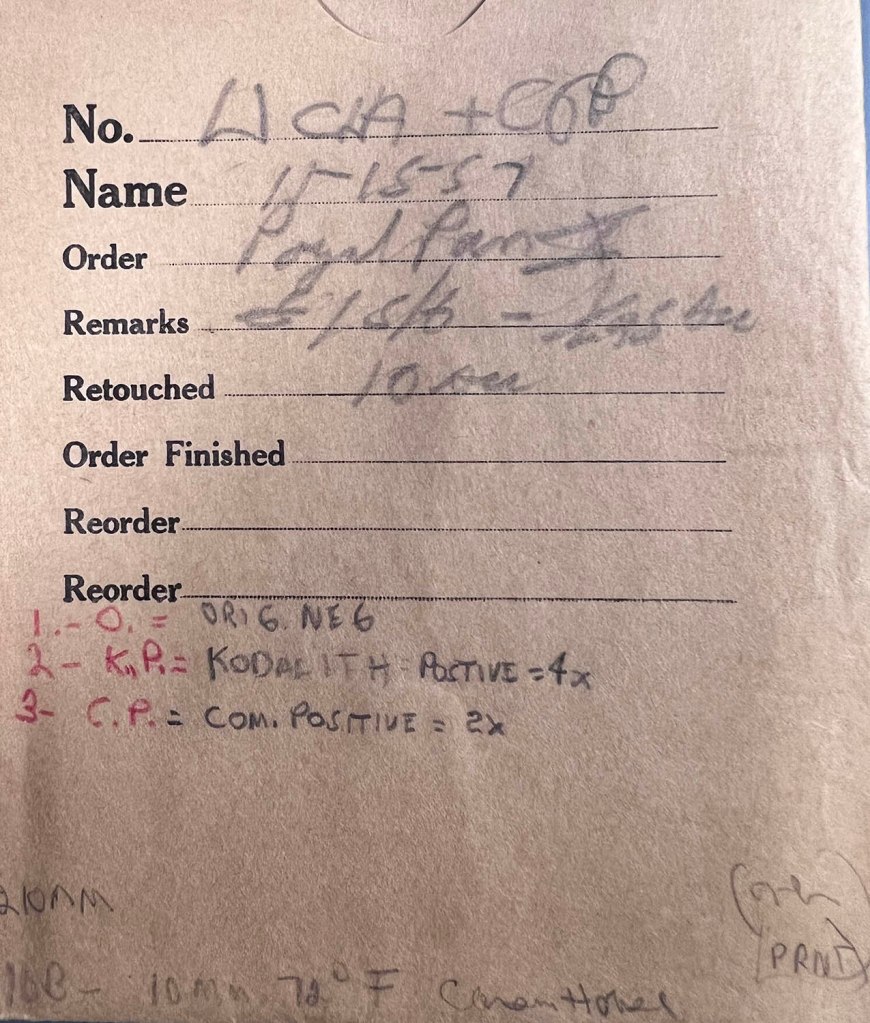 No. CHA + COP
Name 11-15-57
Order Royal Pan
Remarks
Retouched 10
Order Finished
Reorder
Reorder
1.- O. = ORIG. NEG
2- K.P. = KODALITH = POSTIVE = 4x
3- C.P. = COM. POSITIVE = 2x
210MM
(over)
PRNT
10 Min 72° F